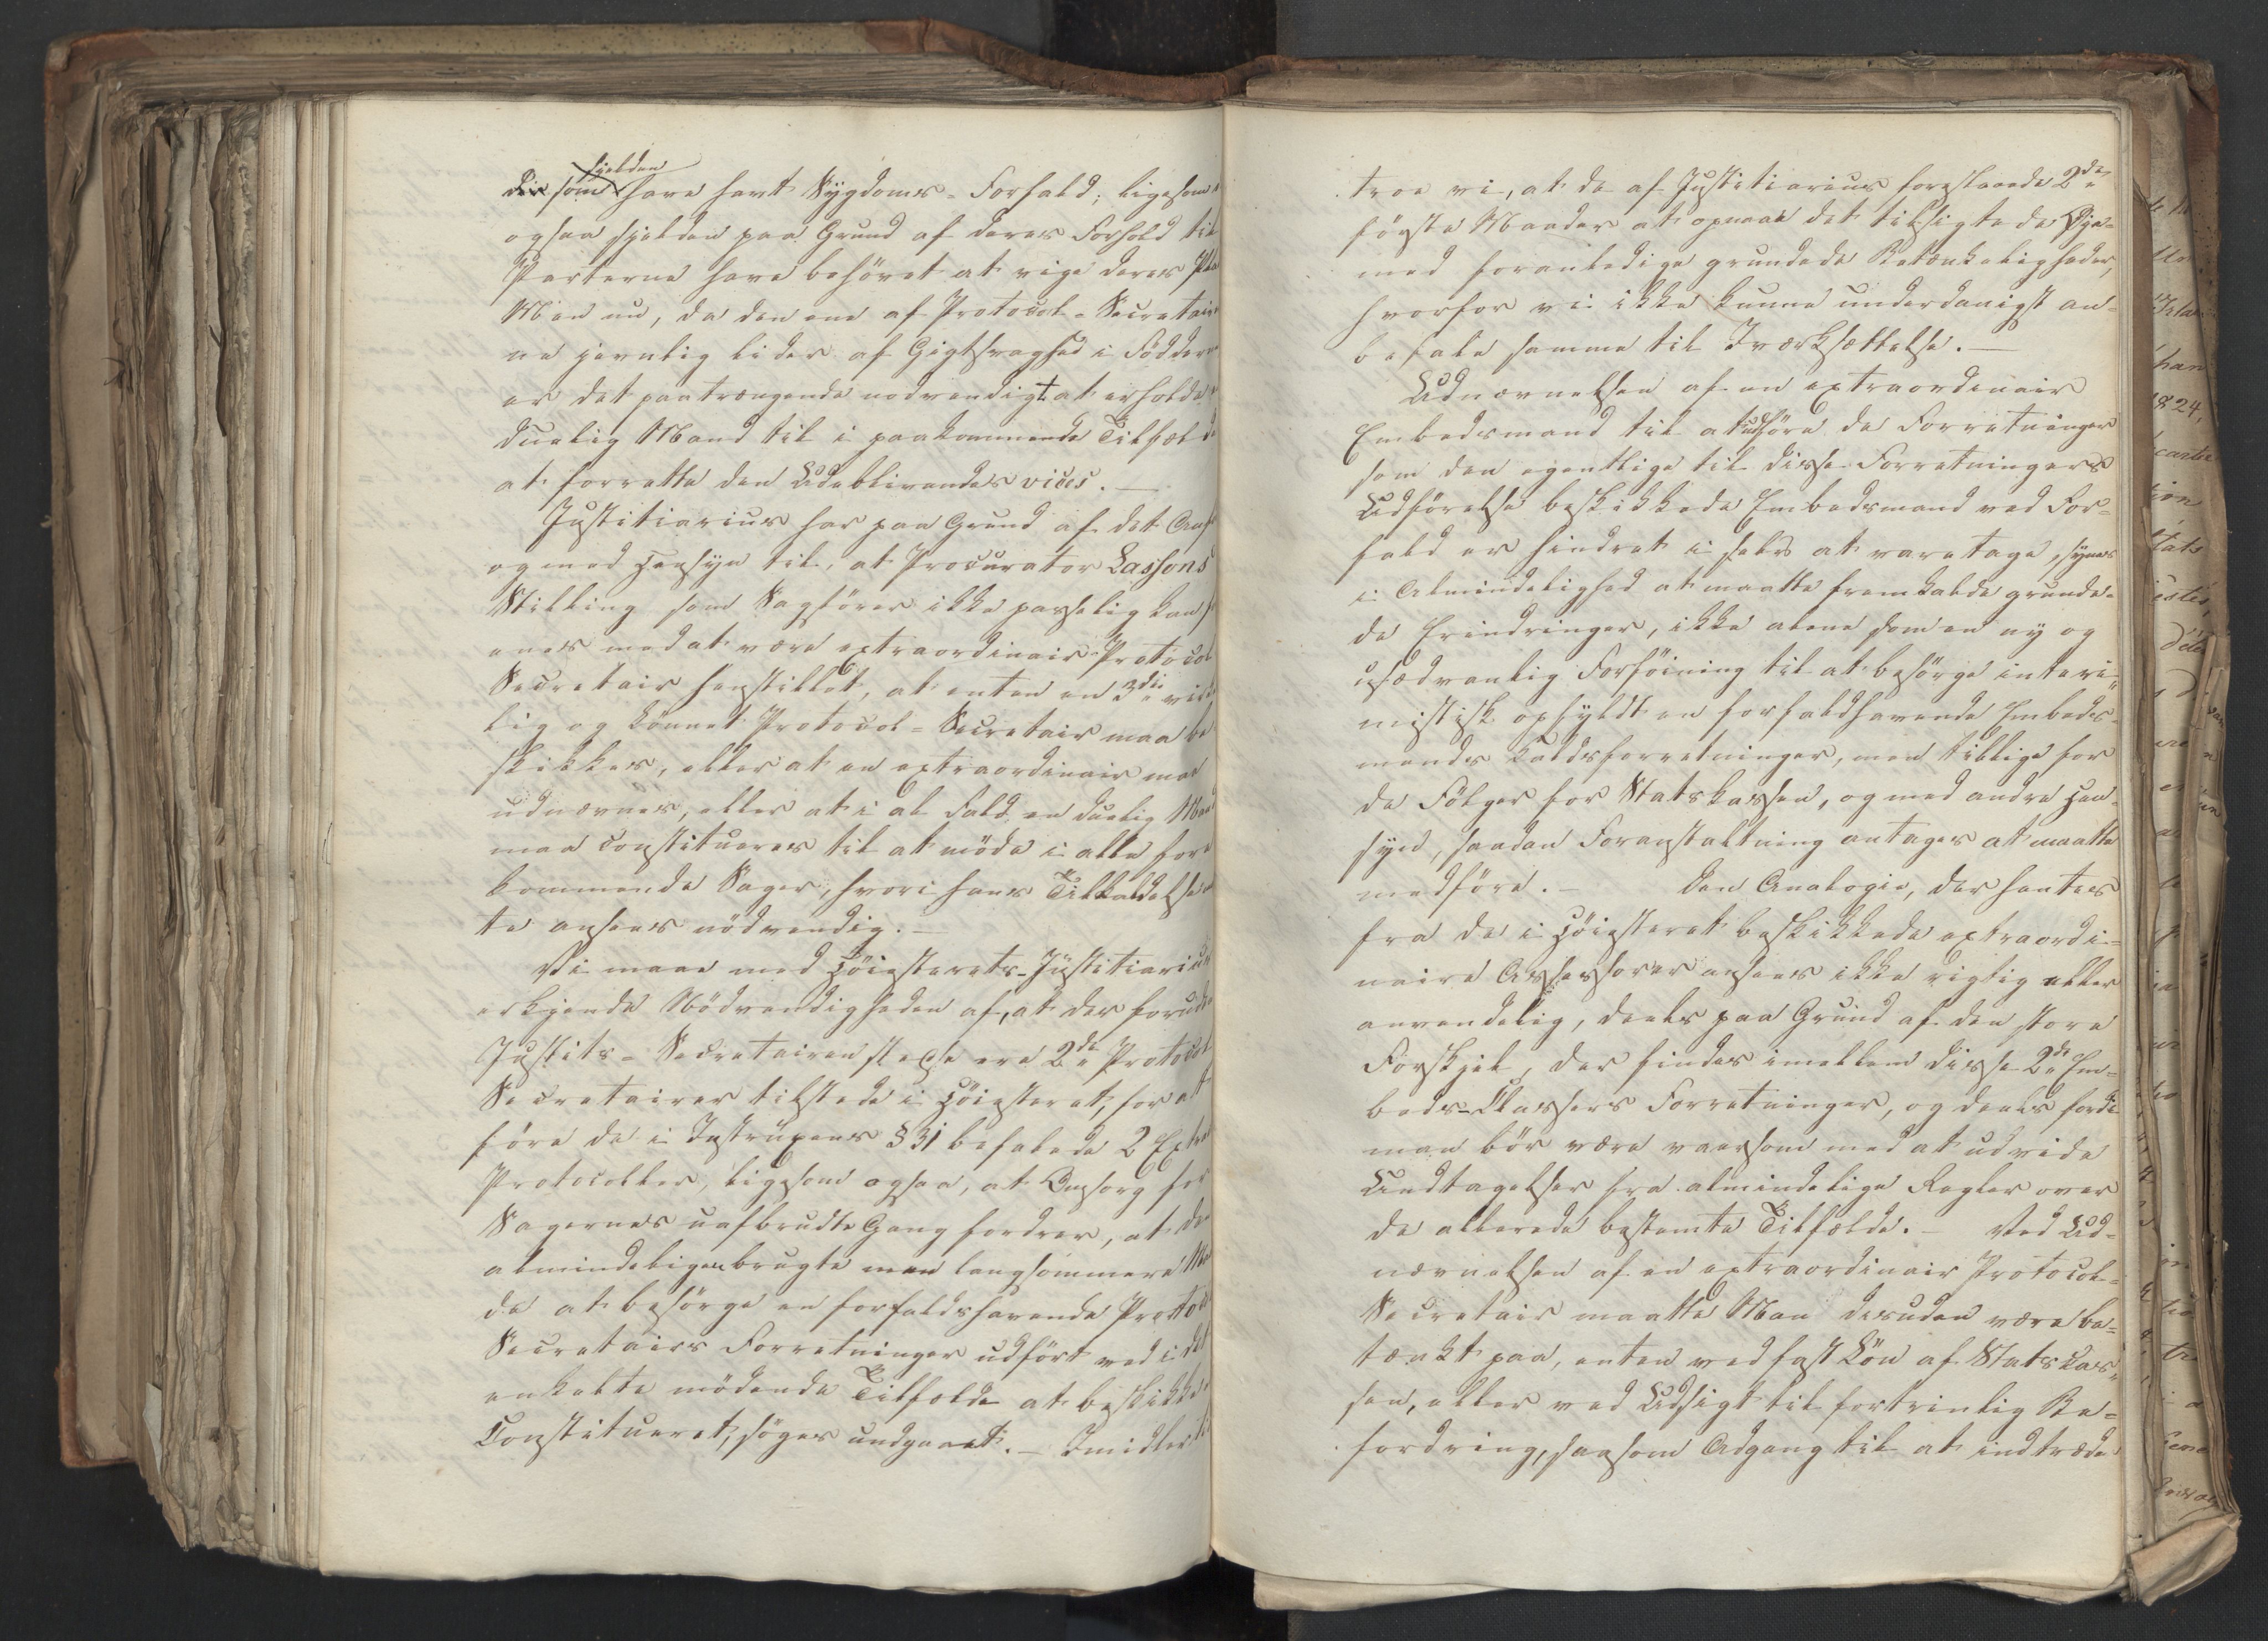 sjelden
have havt Sygdoms-Forfald; ligesom
ogsaa sjelden paa Grund af deres Forhold til
Parterne have behövet at vige deres
Men nu, da den ene af Protocol-Secretair
ne jevnlig lider af Gigtsvaghed i Födderne
er det paatrængende nodvendigt at erholde
duelig Mand til i paakommende Tilfæl
at forrette den Udeblivendes vices. —
Justitiarius har paa Grund af det Anf
og med Hensyn til, at Procurator Lassons
Stilling som Sagförer ikke passelig kan f
enes med at være extraordinair Protocol
Secretair henstillet, at enten en 3die
lig og lönnet Protocol-Secretair maa be
skikkes, eller at en extraordinair maa
udnævnes, eller at i al Fald en duelig Man
maa constitueres til at möde i alle fore
kommende Sager, hvori hans Tilkaldelse
te ansees nödvendig. —
Vi maae med Höiesterets-Justitiarius
erkjende Nödvendigheden af, at der foruden
Justits-Secretairen stedse ere 2de Protocol
Secretairer tilstede i Höiesteret, for at
före de i Instruxens § 31 befalede 2 Extra
Protocoller, ligesom ogsaa, at Omsorg for
Sagernes uafbrudte Gang fordrer, at den
almindeligen brugte men langsommere Maa
de at besörge en forfaldshavende Protocol
Secretairs Forretninger udfört ved i det
enkelte mödende Tilfælde at beskikke
Constitueret, söges undgaaet. — Imidlertid
troe vi, at de af Justitiarius foreslaaede 2de
förste Maader at opnaae det tilsigtede Öie-
med foranledige grundede Betænkeligheder,
hvorfor vi ikke kunne underdanigst an-
befale samme til Iværksættelse. —
Udnævnelsen af en extraordinair
Embedsmand til at udföre de Forretninger
som den egentlige til disse Forretningers
Udförelse beskikkede Embedsmand ved For-
fald er hindret i selv at varetage, synes
i Almindelighed at maatte fremkalde grunde-
de Erindringer, ikke alene som en ny og
usædvanlig Forföining til at besörge interi-
mistisk opfyldt en forfaldhavende Embeds-
mands Kaldsforretninger, men tillige for
de Fölger for Statskassen, og med andre Hen-
syn, saadan Foranstaltning antages at maatte
medföre. — Den Analogie, der hentes
fra de i Höiesteret beskikkede extraordi-
naire Assessorer ansees ikke rigtig eller
anvendelig, deels paa Grund af den store
Forskjel, der findes imellem disse 2de Em-
beds-Classers Forretninger, og deels fordi
man bör være varsom med at udvide
Undtagelser fra almindelige Regler over
de allerede bestemte Tilfælde. — Ved Ud-
nævnelsen af en extraordinair Protocol-
Secretair maatte Man desuden være be-
tænkt paa, enten ved fast Lön af Statscas-
sen, eller ved Udsigt til fortrinlig Be-
fordring, saasom Adgang til at indtræde